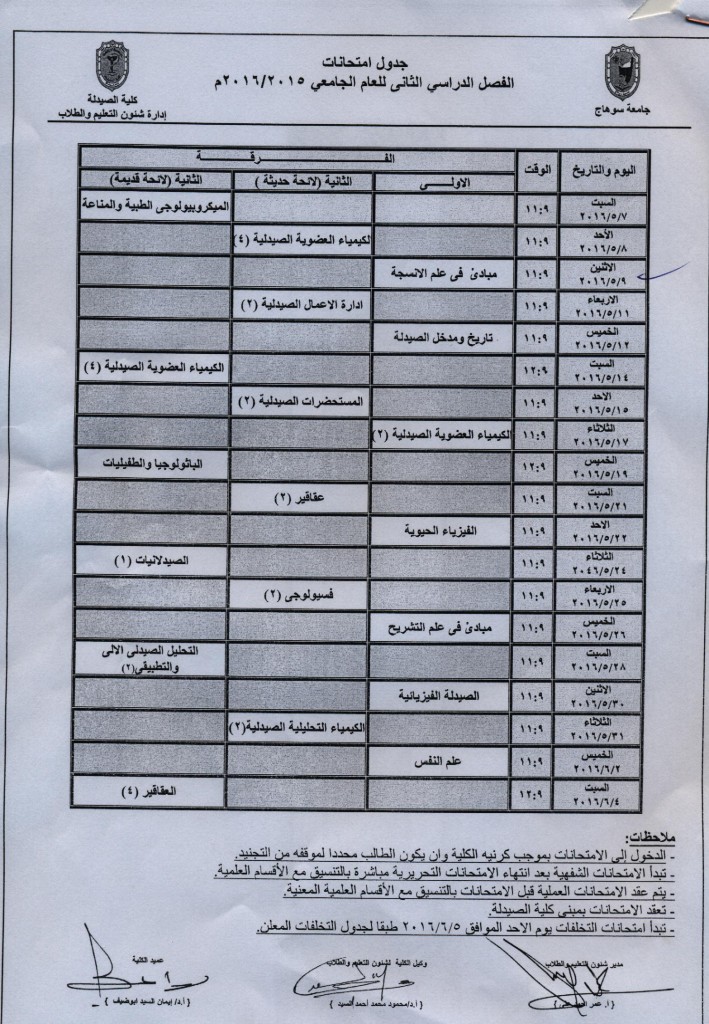 جدول امتحانات
الفصل الدراسي الثانى للعام الجامعي ٢٠١٦/٢٠١٥م
جامعة سوهاج
كلية الصيدلة
إدارة شئون التعليم والطلاب
اليوم والتاريخ الوقت الفـرقـة
الاولـى الثانية (لائحة حديثة ) الثانية (لائحة قديمة)
السبت ٢٠١٦/٥/٧ ١١:٩ الميكروبيولوجى الطبية والمناعة
الأحد ٢٠١٦/٥/٨ ١١:٩ لكيمياء العضوية الصيدلية (٤)
الاثنين ٢٠١٦/٥/٩ ١١:٩ مبادئ فى علم الانسجة
الاربعاء ٢٠١٦/٥/١١ ١١:٩ ادارة الاعمال الصيدلية (٢)
الخميس ٢٠١٦/٥/١٢ ١١:٩ تاريخ ومدخل الصيدلة
السبت ٢٠١٦/٥/١٤ ١٢:٩ الكيمياء العضوية الصيدلية (٤)
الاحد ٢٠١٦/٥/١٥ ١١:٩ المستحضرات الصيدلية (٢)
الثلاثاء ٢٠١٦/٥/١٧ ١١:٩ الكيمياء العضوية الصيدلية (٢)
الخميس ٢٠١٦/٥/١٩ ١٢:٩ الباثولوجيا والطفيليات
السبت ٢٠١٦/٥/٢١ ١١:٩ عقاقير (٢)
الاحد ٢٠١٦/٥/٢٢ ١١:٩ الفيزياء الحيوية
الثلاثاء ٢٠٤٦/٥/٢٤ ١١:٩ الصيدلانيات (١)
الاربعاء ٢٠١٦/٥/٢٥ ١١:٩ فسيولوجى (٢)
الخميس ٢٠١٦/٥/٢٦ ١١:٩ مبادئ فى علم التشريح
السبت ٢٠١٦/٥/٢٨ ١١:٩ التحليل الصيدلى الالى
والتطبيقى(٢)
الاثنين ٢٠١٦/٥/٣٠ ١١:٩ الصيدلة الفيزيائية
الثلاثاء ٢٠١٦/٥/٣١ ١١:٩ الكيمياء التحليلية الصيدلية(٢)
الخميس ٢٠١٦/٦/٢ ١١:٩ علم النفس
السبت ٢٠١٦/٦/٤ ١٢:٩ العقاقير (٤)
ملاحظات:
- الدخول إلى الامتحانات بموجب كرنيه الكلية وان يكون الطالب محددا لموقفه من التجنيد.
- تبدأ الامتحانات الشفهية بعد انتهاء الامتحانات التحريرية مباشرة بالتنسيق مع الأقسام العلمية.
- يتم عقد الامتحانات العملية قبل الامتحانات بالتنسيق مع الأقسام العلمية المعنية.
- تعقد الامتحانات بمبنى كلية الصيدلة.
- تبدأ امتحانات التخلفات يوم الاحد الموافق ٢٠١٦/٦/٥ طبقا لجدول التخلفات المعلن.
مدير شئون التعليم والطلاب
{ أ. عمر
وكيل الكلية لشئون التعليم والطلاب
{ أ.د/محمود محمد أحمد السيد }
عميد الكلية
{ أ.د/ إيمان السيد ابوضيف }